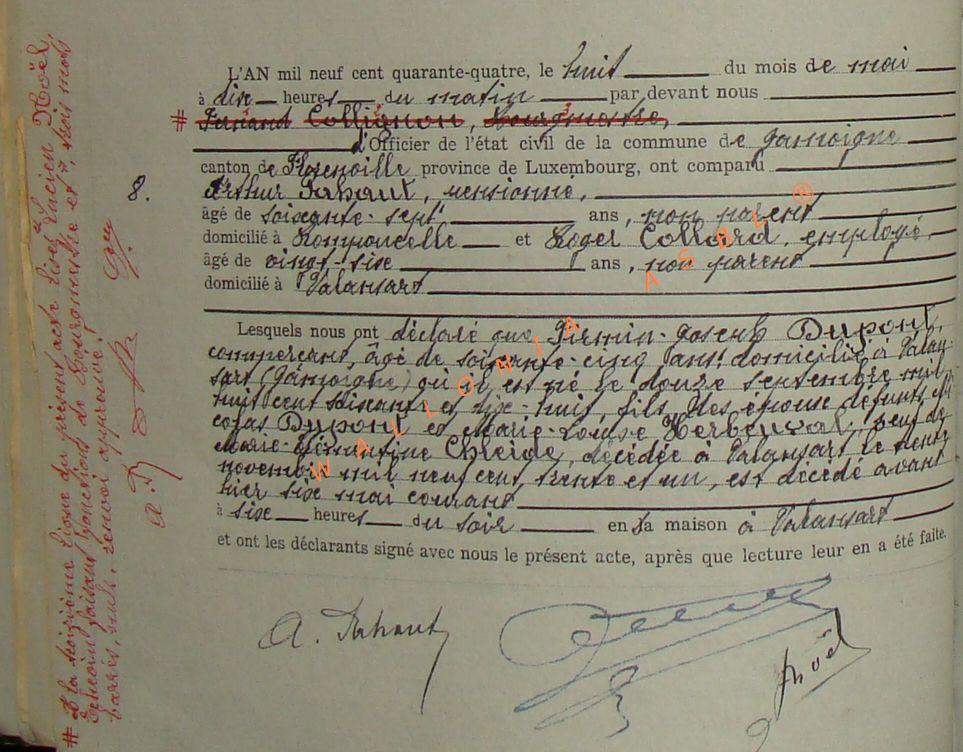 L'AN mil neuf cent quarante-quatre, le huit du mois de mai
à dix heures du matin par devant nous
# Fernand Collignon, Bourgmestre,
d'Officier de l'état civil de la commune de Jamoigne
canton de Florenville province de Luxembourg, ont comparu
Arthur, pensionné,
âgé de soixante-sept ans, non parent
domicilié à Romponcelle et Roger Collard, employé,
âgé de vingt-six ans, non parent
domicilié à Valansart
Lesquels nous ont déclaré que Firmin-Joseph Dupont,
commerçant, âgé de soixante-cinq ans, domicilié à Valan-
sart (Jamoigne) qu'il est né le douze septembre mil
huit cent soixante et dix-huit, fils des époux défunts, Ni-
colas Dupont et Marie-Louise Herbeuval, veuf de
Marie, décédée à Valansart le trente
novembre mil neuf cent trente et un, est décédé avant
hier six mai courant
à six heures du soir en sa maison à Valansart
et ont les déclarants signé avec nous le présent acte, après que lecture leur en a été faite.
8.
# A la troisième ligne du présent acte lisez "Lucien Noël,
Echevin faisant fonctions de Bourgmestre et", trois mots
barrés, nuls, renvoi approuvé.
Noël
WALLONIA ASBL ®